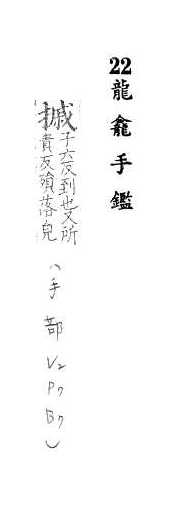 22龍龕手鑑
摵子六反到也又所責反隕落皃
(手部 V2 P7 B7)